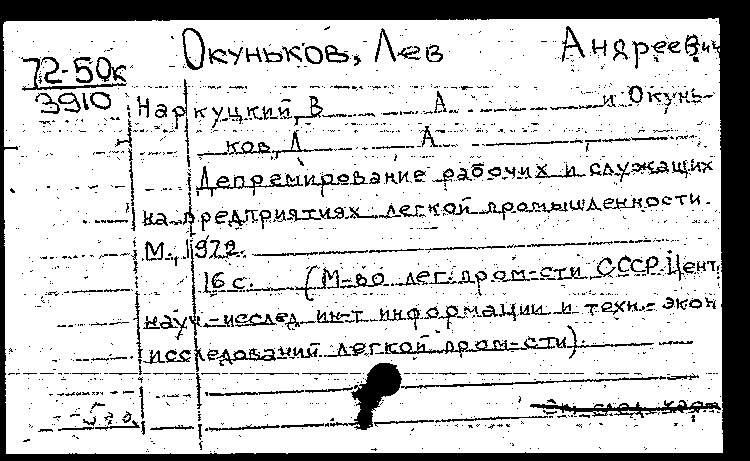 Окуньков, Лев Андреевич
72-50к
3910
Наркуцкий, В А и Окунь-
ков, Л А
Депремирование рабочих и служащих
на предприятиях легкой промышленности.
М., 1972.
16 с. (М-во лег. пром-сти СССР. Цент.
науч.-исслед ин-т информации и техн.-экон
исследований легкой пром-сти).
См. след. карт